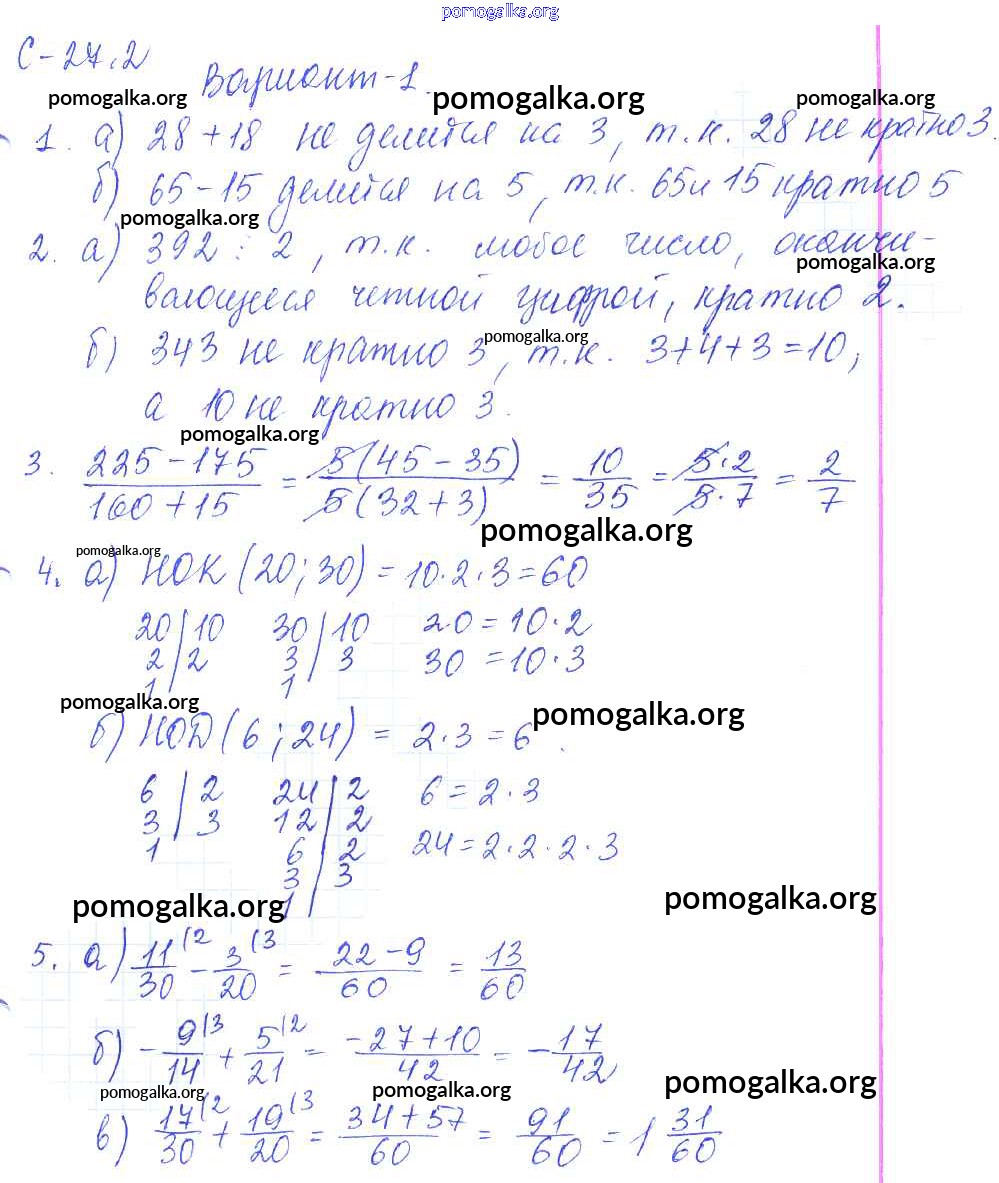 pomogalka.org
С-27.2
Вариант-1.
pomogalka.org pomogalka.org pomogalka.org
1. а) 28 + 18 не делится на 3, т.к. 28 не кратно 3.
б) 65 - 15 делится на 5, т.к. 65 и 15 кратно 5
pomogalka.org
2. а) 392 ⋮ 2, т.к. любое число, оканчи-
pomogalka.org
вающееся четной цифрой, кратно 2.
б) 343 не кратно 3, т.к. 3+4+3=10,
pomogalka.org
а 10 не кратно 3.
pomogalka.org
3. (225 - 175)/(160 + 15) = 5(45 - 35)/5(32 + 3) = 10/35 = 5·2/5·7 = 2/7
pomogalka.org
pomogalka.org
4. а) НОК (20; 30) = 10·2·3 = 60
20|10 30|10 20 = 10·2
2|2 3|3 30 = 10·3
1| 1|
pomogalka.org pomogalka.org
б) НОД (6; 24) = 2·3 = 6.
6|2 24|2 6 = 2·3
3|3 12|2
1 6|2 24 = 2·2·2·3
3|3
1|
pomogalka.org pomogalka.org
5. а) 11/30 (2 - 3/20 (3 = (22 - 9)/60 = 13/60
б) - 9/14 (3 + 5/21 (2 = (-27 + 10)/42 = - 17/42
pomogalka.org pomogalka.org pomogalka.org
в) 17/30 (2 + 19/20 (3 = (34 + 57)/60 = 91/60 = 1 31/60